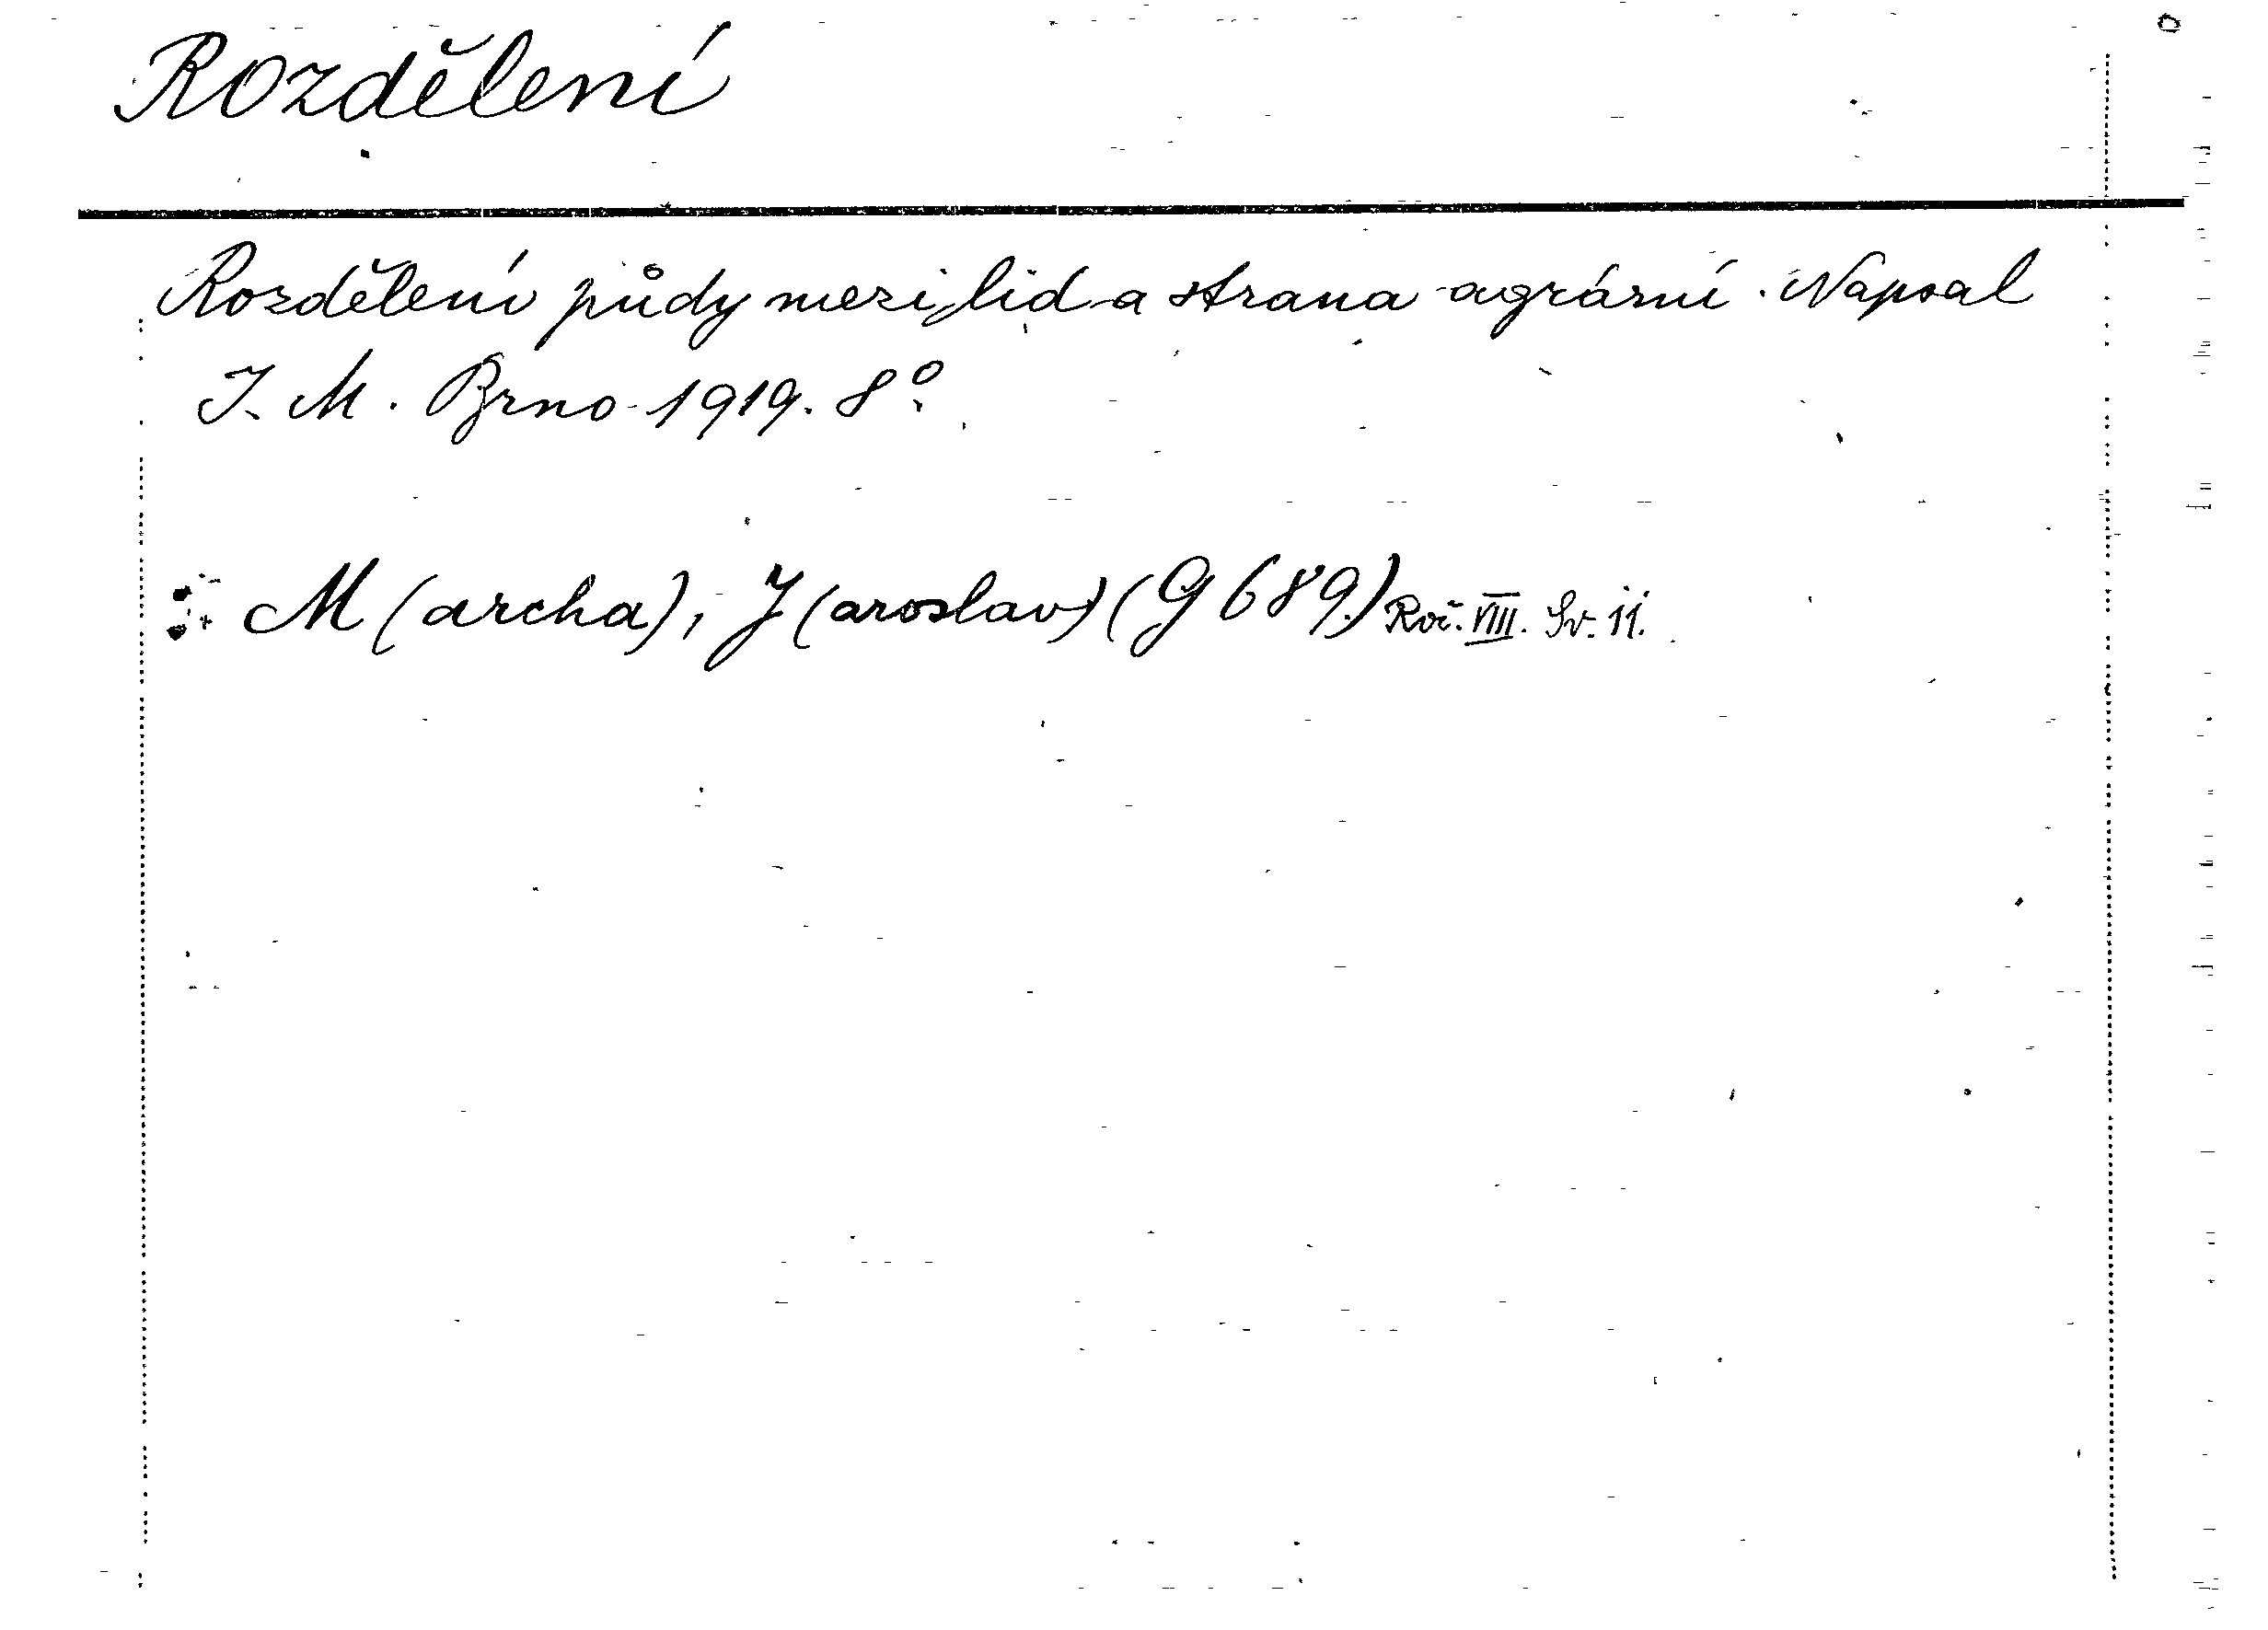 Rozdělení
Rozdělení půdy mezi lid a strana agrární. Napsal
J. M. Brno 1919. 8°.
M(archa), J(aroslav) (G 689.) Roč. VIII. Sv. 11.